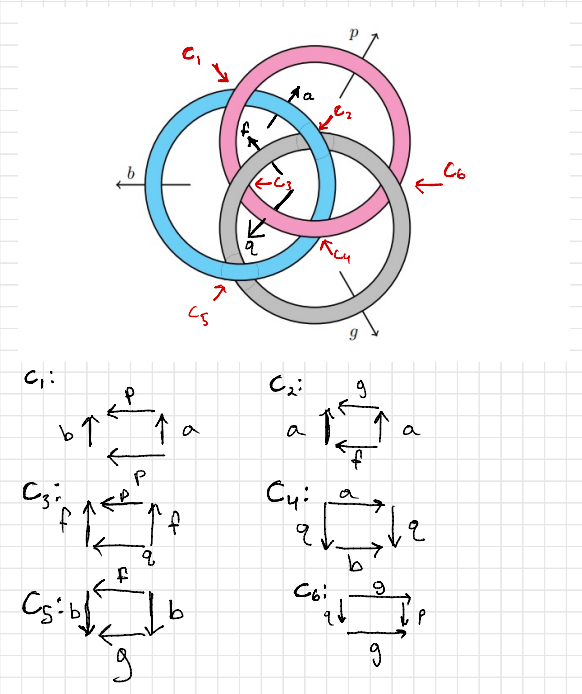 p
C1
a
C2
f
b
C3
C6
q
C4
C5
g
C1:
p
b
a
p
C2:
g
a
a
f
C3:
p
f
f
q
C4:
a
q
q
b
C5:
f
b
b
g
C6:
g
q
p
g